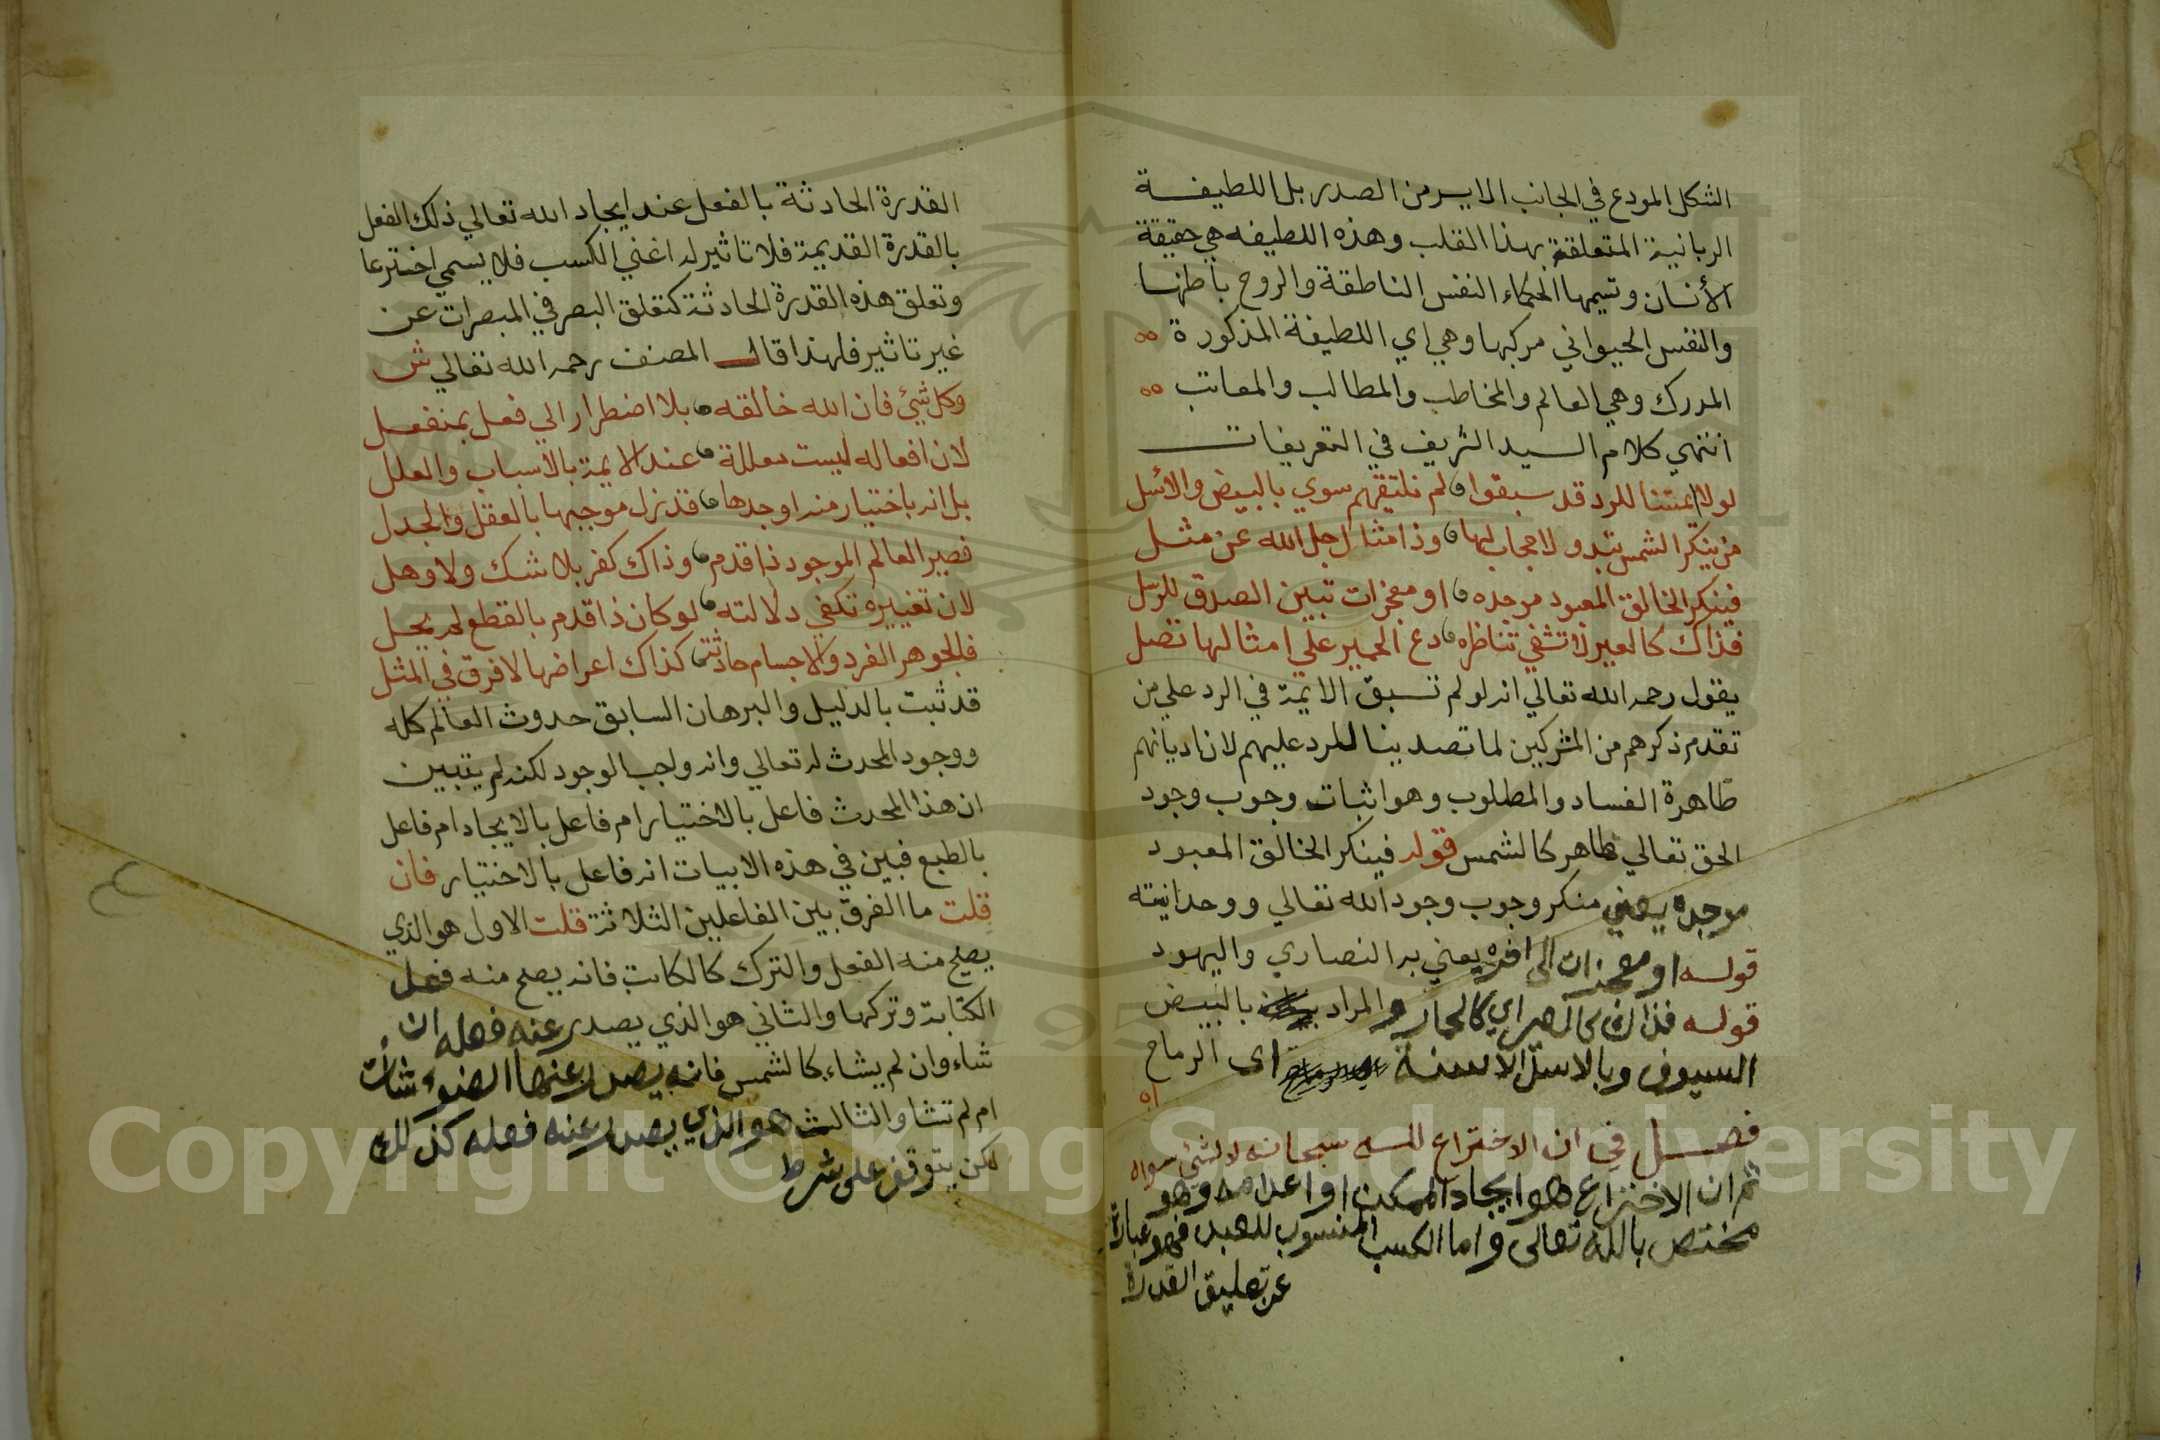 الشكل المودع في الجانب الايسر من الصدر بل اللطيفة
الربانية المتعلقة بهذا القلب وهذه اللطيفه هي حقيقة
الأنسان وتسيمها الحكماء النفس الناطقة والروح باطنها
والنفس الحيواني مركبها وهي اي اللطيفة المذكورة
المدرك وهي العالم والمخاطب والمطالب والمعاتب
انتهي كلام السيد الشريف في التعريفات
لولا ايمتنا للرد قد سبقوا لم نلتقهم سوي بالبيض والأسل
من ينكر الشمس تبدو لا حجاب لها وذا مثال جل الله عن مثل
فينكر الخالق المعبود موجده او معجزات تبين الصدق للرسل
فذاك كالعير لا تشفي تناظره دع الحمير علي امثالها تصل
يقول رحمه الله تعالي انه لو لم تسبق الايمة في الرد علي من
تقدم ذكرهم من المشركين لما تصدينا للرد عليهم لان اديانهم
ظاهرة الفساد والمطلوب وهو اثبات وجوب وجود
الحق تعالي ظاهر كالشمس قوله فينكر الخالق المعبود
موجده يعني منكر وجوب وجود الله تعالي ووحدانيته
قوله او معجزات الى اخره يعني به النصاري واليهود
قوله فذاك كالعير اي كالحمار والمراد بالبيض
السيوف وبالاسل الاسنة اي الرماح
اه
فصل في ان الاختراع لله سبحانه لا لشئ سواه
ثم ان الاختراع هو ايجاد الممكن او اعدامه وهو
مختص بالله تعالى واما الكسب المنسوب للعبد فهو عبارة
عن تعليق القدرة
القدرة الحادثة بالفعل عند ايجاد الله تعالي ذلك الفعل
بالقدرة القديمة فلا تاثير له اعني الكسب فلا يسمي اخترعا
وتعلق هذه القدرة الحادثة كتعلق البصر في المبصرات عن
غير تاثير فلهذا قال المصنف رحمه الله تعالي ش
وكل شيئ فان الله خالقه بلا اضطرار الي فعل بمنفعل
لان افعاله ليست معللة عند الايمة بالأسباب والعلل
بل انه باختيار منه اوجدها قد نزل موجبها بالعقل والجدل
فصير العالم الموجود ذا قدم وذاك كفر بلا شك ولا وهل
لان تغييره تكفي دلالته لو كان ذا قدم بالقطع لم يحل
فالجوهر الفرد والاجسام حادثة كذاك اعراضها لا فرق في المثل
قد ثبت بالدليل والبرهان السابق حدوث العالم كله
ووجود المحدث له تعالي وانه واجب الوجود لكنه لم يتبين
ان هذا المحدث فاعل بالاختيار ام فاعل بالايجاد ام فاعل
بالطبع فبين في هذه الابيات انه فاعل بالاختيار فان
قلت ما الفرق بين الفاعلين الثلاثة قلت الاول هو الذي
يصلح منه الفعل والترك كالكاتب فانه يصلح منه فعل
الكتابة وتركها والثاني هو الذي يصدر عنه فعله ان
شاء وان لم يشاء كالشمس فانه يصدر عنها الضوء شأت
ام لم تشا والثالث هو الذي يصدر عنه فعله كذلك
لكن يتوقف على شرط
Copyright © King Saud University